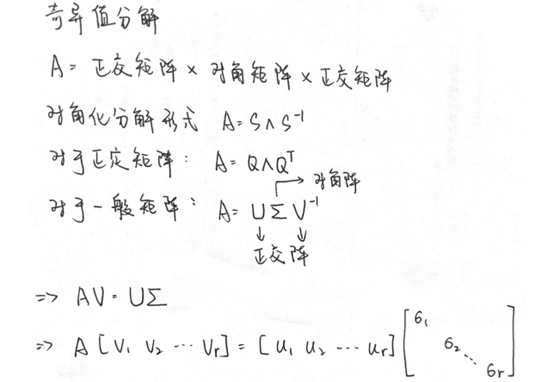 奇异值分解
A = 正交矩阵 × 对角矩阵 × 正交矩阵
对角化分解形式 A=SΛS⁻¹
对于正定矩阵： A=QΛQᵀ
→ 对角阵
对于一般矩阵： A= U Σ V⁻¹
↓ ↓
正交阵
=> AV = UΣ
=> A [V₁ V₂ ⋯ Vᵣ] = [u₁ u₂ ⋯ uᵣ] [σ₁ σ₂ ⋱ σᵣ]